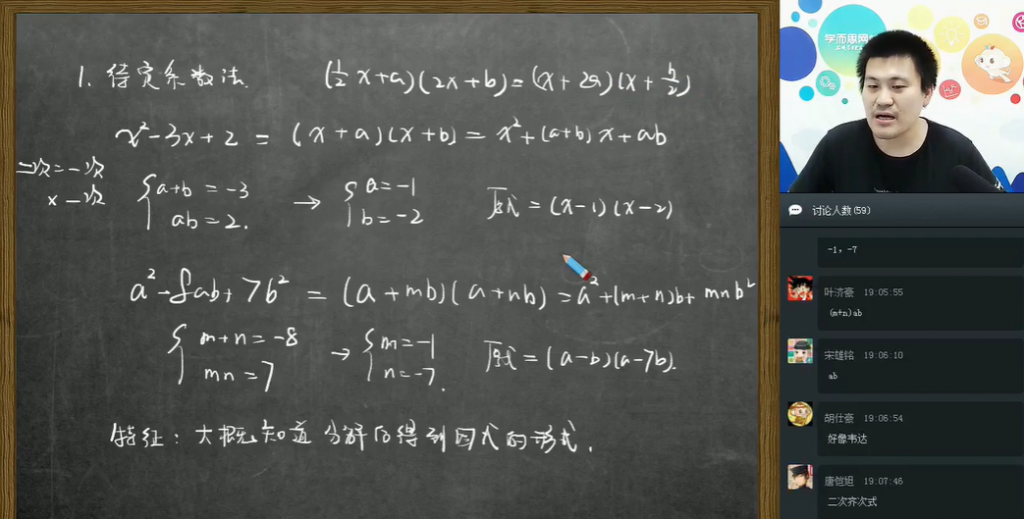 1. 待定系数法 (½x+a)(2x+b)=(x+2a)(x+b/2)
x²-3x+2 = (x+a)(x+b) = x²+(a+b)x+ab
二次=一次
x一次
{a+b=-3
ab=2.
→ {a=-1
b=-2
原式=(x-1)(x-2)
a²-8ab+7b² = (a+mb)(a+nb)=a²+(m+n)b+mnb²
{m+n=-8
mn=7
→ {m=-1
n=-7.
原式=(a-b)(a-7b).
特征:大概知道分解后得到因式的形式.
学而思网
讨论人数(59)
-1,-7
叶济豪 19:05:55
(m+n)ab
宋雄铭 19:06:10
ab
胡仕豪 19:06:54
好像韦达
唐铠旭 19:07:46
二次齐次式